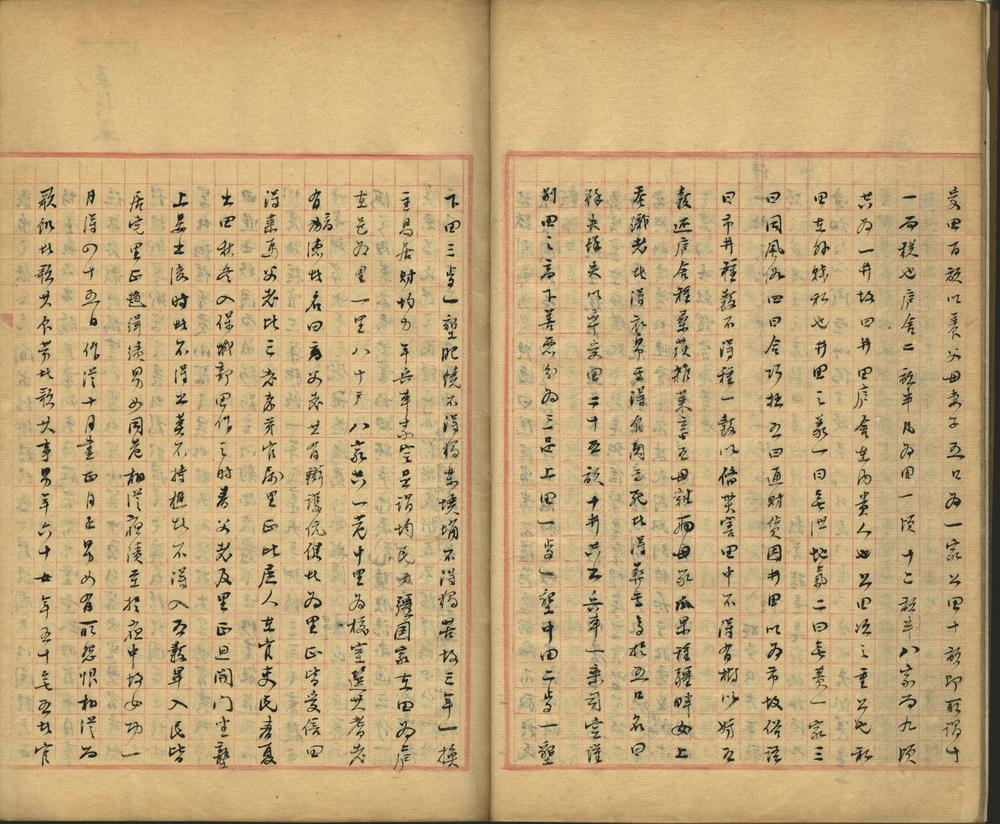 受田百畝以養父母妻子五口为一家公田十畝即所謂十
一而税也庐舍二畝半凡为田一頃十二畝半八家而九頃
共为一井故曰井田庐舍在內贵人也公田次之重公也私
田在外賤私也井田之義一曰無世地氣二曰無费一家三
曰同風俗四曰合巧拙五曰通財货因井田以为市故俗語
曰市井種穀不得種一穀以備災害田中不得有樹以妨五
穀还庐舍種桑荻雜菜畜五母雞两母豕瓜果種疆畔女上
蚕織老者得衣帛焉得食肉焉死者得葬焉多於五口名曰
餘夫餘夫以率受田二十五畝十井共出兵車一乘司空謹
别田之高下善恶分为三品上田一歲一墾中田二歲一墾
下田三歲一墾肥饒不得獨樂墝埆不得獨苦故三年一换
主易居财均力平兵車素定是謂均民力彊国家在田曰庐
在邑曰里一里八十户八家共一巷中里为校室選其耆老
有高德者名曰父老其有辯護伉健者为里正皆受倍田
得乘馬父老比三老孝弟官属里正比庶人在官吏民春夏
出田秋冬入保城郭田作之时春父老及里正旦開門坐塾
上晏出後时者不得出莫不持樵者不得入五穀畢入民皆
居宅里正趨缉績男女同巷相從夜績至於夜中故女功一
月得四十五日作從十月盡正月止男女有所怨恨相從而
歌饥者歌其食劳者歌其事男年六十女年五十無子者官